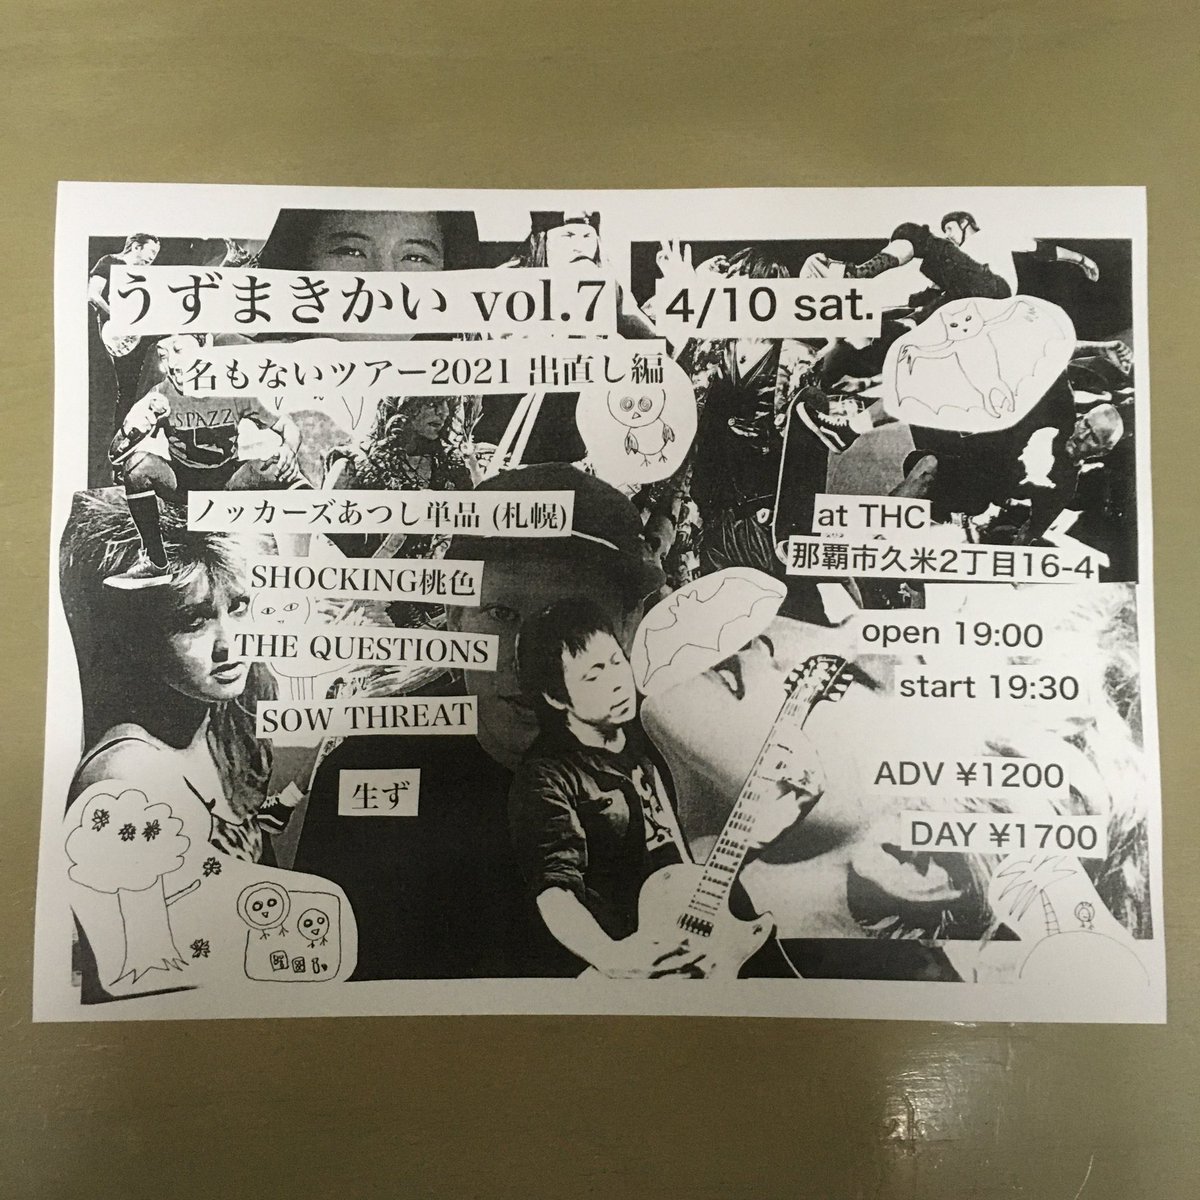 うずまきかい vol.7
4/10 sat.
名もないツアー2021 出直し編
SPAZZ
ノッカーズあつし単品 (札幌)
SHOCKING桃色
THE QUESTIONS
SOW THREAT
生ず
at THC
那覇市久米2丁目16-4
open 19:00
start 19:30
ADV ¥1200
DAY ¥1700